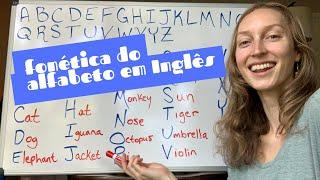 ABCDEFGHIJKLMN
QRSTUVWXYZ
fonética do
alfabeto em Inglês
Monkey Sun
Cat Hat Nose Tiger
Dog Iguana Octopus Umbrella
Elephant Jacket Violin